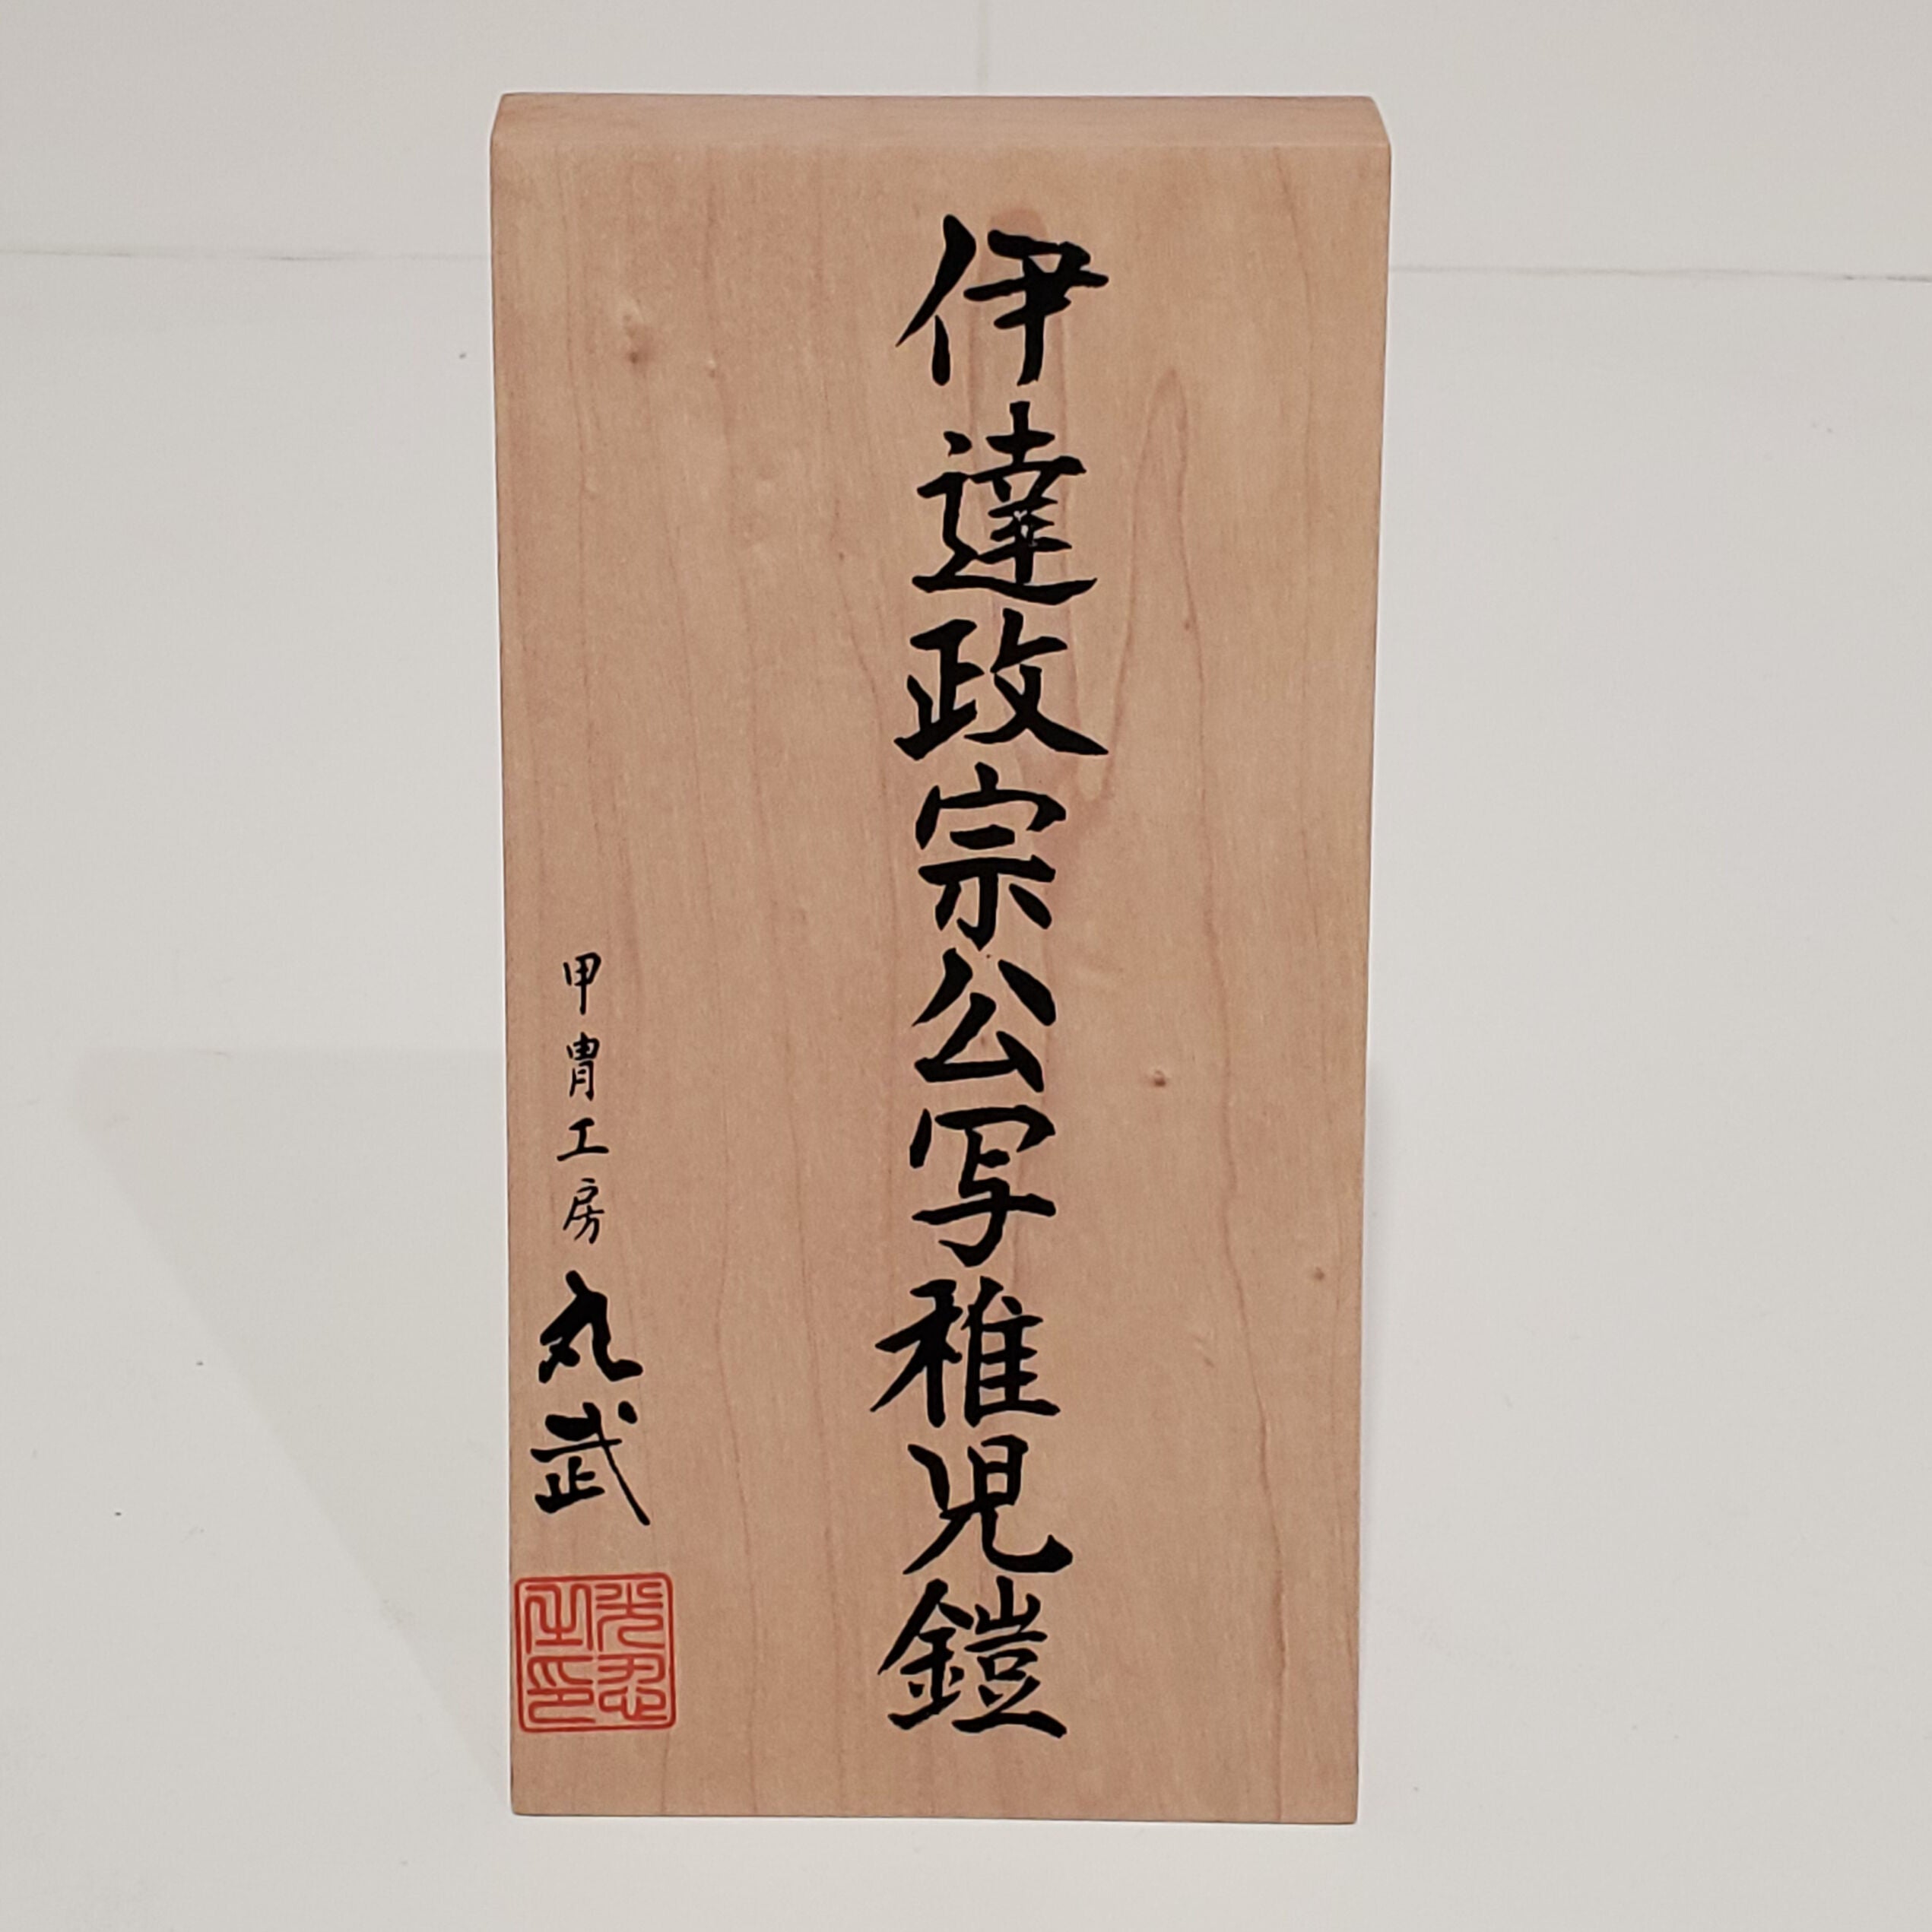 伊達政宗公写稚児鎧
甲冑工房 丸武